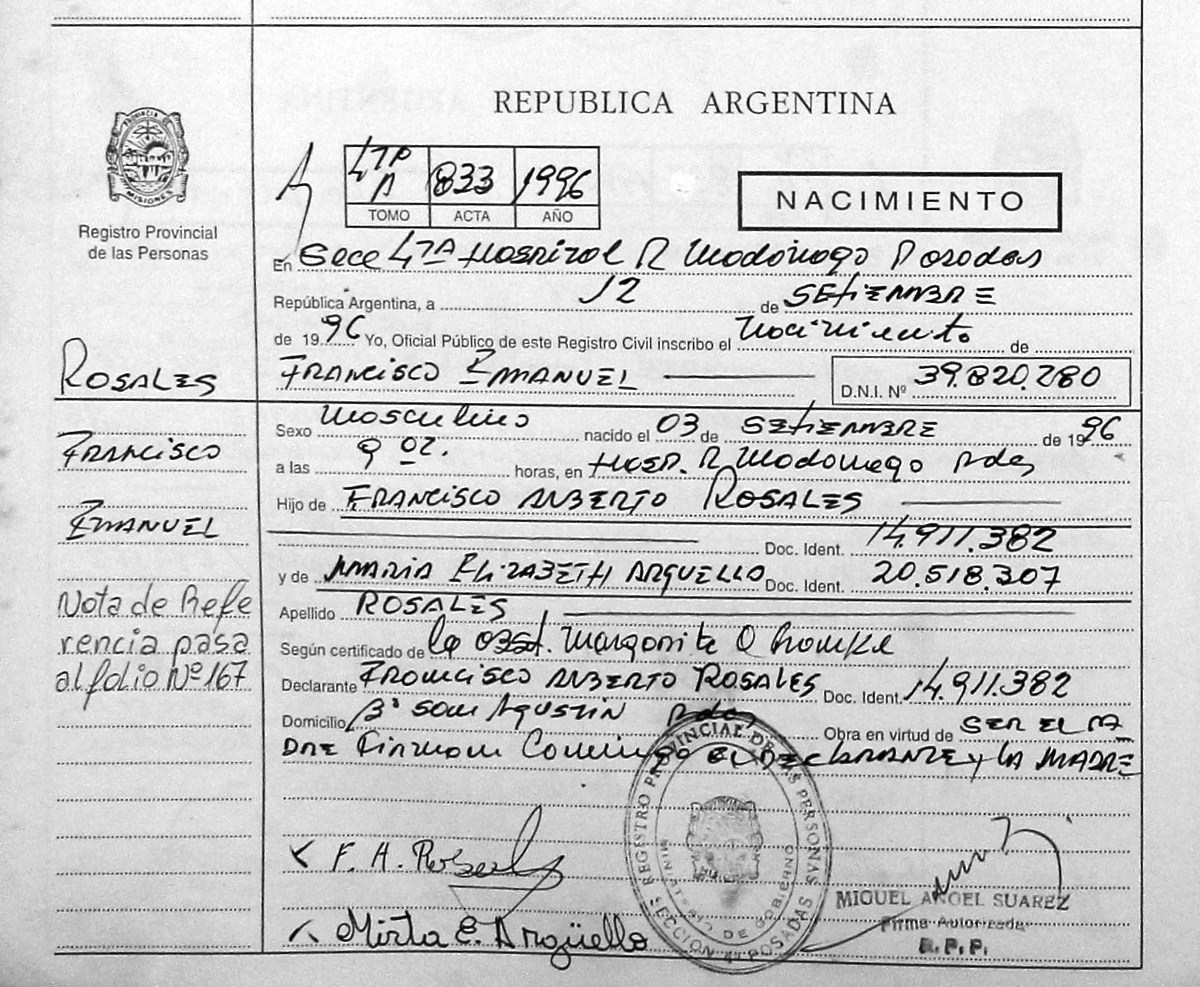 REPUBLICA ARGENTINA
PROVINCIA DE MISIONES
Registro Provincial
de las Personas
4TA A 833 1996
TOMO ACTA AÑO
NACIMIENTO
En Secc 4TA Hospital R Madariaga Posadas
República Argentina, a 12 de SEtiEMBRE
de 1996 Yo, Oficial Público de este Registro Civil inscribo el Nacimiento de
ROSALES
FRANCISCO EMANUEL D.N.I. Nº 39.820.280
Sexo Masculino nacido el 03 de SEtiEMBRE de 1996
FRANCISCO
a las 9 02. horas, en Hosp. R Madariaga Pdas
Hijo de FRANCISCO ALBERTO ROSALES
EMANUEL
Doc. Ident. 14.911.382
y de MARIA ELIZABETH ARGUELLO Doc. Ident. 20.518.307
Nota de Refe
rencia pasa
al folio Nº 167
Apellido ROSALES
Según certificado de la obst. Margarita
Declarante FRANCISCO ALBERTO ROSALES Doc. Ident. 14.911.382
Domicilio Bº San AgUSTIN Pdas Obra en virtud de SER EL PA
DRE Firman Conmigo EL DECLARANTE y LA MADRE
REGISTRO PROVINCIAL DE LAS PERSONAS
MINISTERIO DE GOBIERNO
SECCION 4ª POSADAS
F. A. Rosales
Mirta E. Argüello
MIGUEL ANGEL SUAREZ
Firma Autorizada
R.P.P.